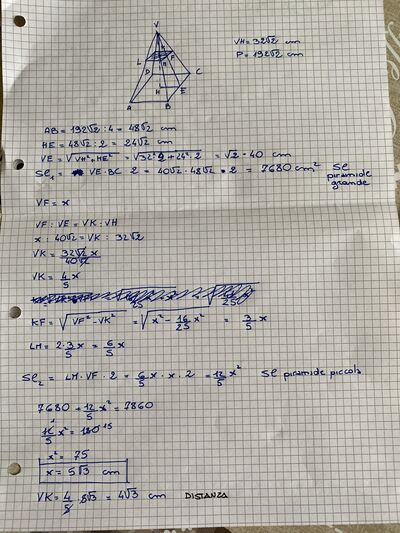 V
VH = 32√2 cm
P = 192√2 cm
L K F
D C
H E
A B
AB = 192√2 : 4 = 48√2 cm
HE = 48√2 : 2 = 24√2 cm
VE = √VH² + HE² = √32²·2 + 24²·2 = √2 · 40 cm
Sℓ₁ = VE · BC · 2 = 40√2 · 48√2 · 2 = 7680 cm² Sℓ piramide grande
VF = x
VF : VE = VK : VH
x : 40√2 = VK : 32√2
VK = 32√2 x / 40√2
VK = 4/5 x
KF = √VF² - VK² = √x² - 16/25 x² = 3/5 x
LM = 2 · 3/5 x = 6/5 x
Sℓ₂ = LM · VF · 2 = 6/5 x · x · 2 = 12/5 x² Sℓ piramide piccola
7680 + 12/5 x² = 7860
12/5 x² = 180 15
x² = 75
x = 5√3 cm
VK = 4/5 · 5√3 = 4√3 cm DISTANZA